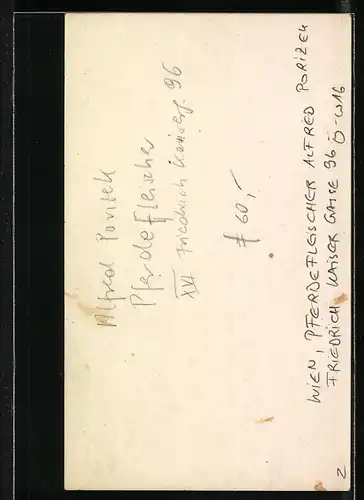 Alfred Porizek
Pferdefleischer
XVI Friedrich Kaiserg. 96
# 60,-
WIEN, PFERDEFLEISCHER ALFRED PORIZEK
FRIEDRICH KAISER GASSE 96 Ö-W16
Z